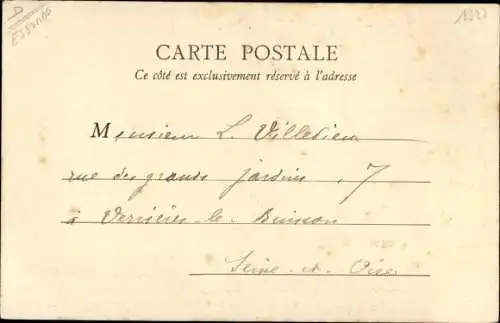 Essonne
CARTE POSTALE
Ce côté est exclusivement réservé à l'adresse
Monsieur L. Villedieu
rue des grands jardins, 7
à Verrières-le-Buisson
Seine-et-Oise